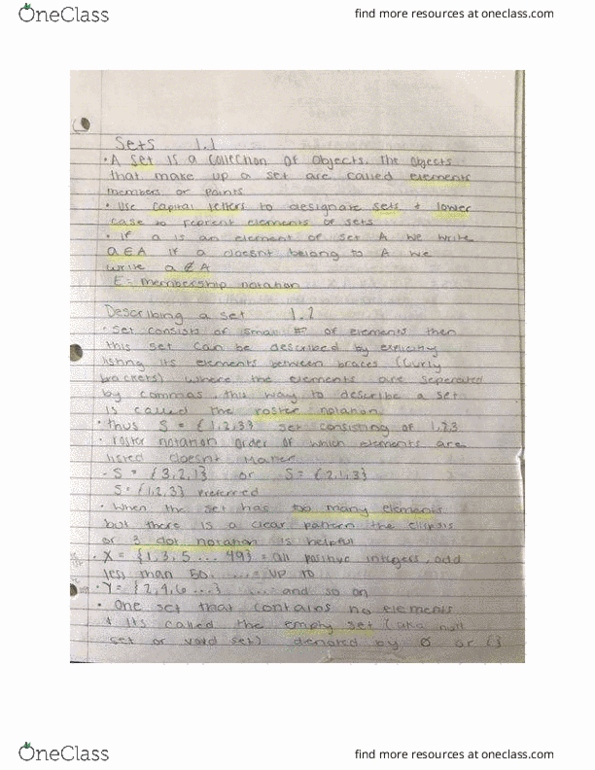 OneClass
find more resources at oneclass.com
Sets 1.1
• A set is a collection of objects. The objects
that make up a set are called elements
members or points
• Use capital letters to designate sets + lower
case to reprent elements of sets
• if a is an element of set A we write
a ∈ A if a doesnt belong to A we
write a ∉ A
E = membership notation
Describing a set 1.2
• Set consists of small # of elements then
this set can be described by explicitly
listing its elements between braces (curly
brackets) where the elements are seperated
by commas, this way to describe a set
is called the roster notation
• Thus S = {1,2,3} set consisting of 1,2,3
• roster notation order of which elements are
listed doesnt matter
- S = {3,2,1} or S = {2,1,3}
S = {1,2,3} preferred
• When the set has too many elements
but there is a clear pattern the ellipsis
or 3 dot notation is helpful
• X = {1,3,5 ... 49} = all positive integers, odd
less than 50. .... up to
• Y = {2,4,6 ...} .... and so on
• One set that contains no elements
+ its called the empty set (aka null
set or void set) denoted by Ø or { }
OneClass
find more resources at oneclass.com